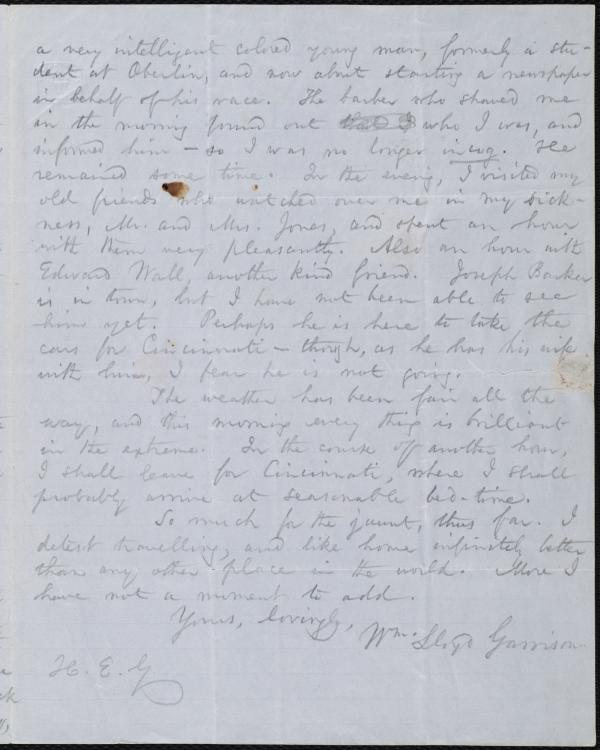 a very intelligent colored young man, formerly a stu-
dent at Oberlin, and now about starting a newspaper
in behalf of his race. The barber who shaved me
in the morning found out who I was, and
informed him — so I was no longer incog. He
remained some time. In the eveng, I visited my
old friends who watched over me in my sick-
ness, Mr. and Mrs. Jones, and spent an hour
with them very pleasantly. Also an hour with
Edward Wall, another kind friend. Joseph Barker
is in town, but I have not been able to see
him yet. Perhaps he is here to take the
cars for Cincinnati — though, as he has his wife
with him, I fear he is not going.
The weather has been fair all the
way, and this morning every thing is brilliant
in the extreme. In the course of another hour,
I shall leave for Cincinnati, where I shall
probably arrive at seasonable bed-time.
So much for the jaunt, thus far. I
detest travelling, and like home infinitely better
than any other place in the world. More I
have not a moment to add.
Yours, lovingly,
Wm. Lloyd Garrison.
H. E. G